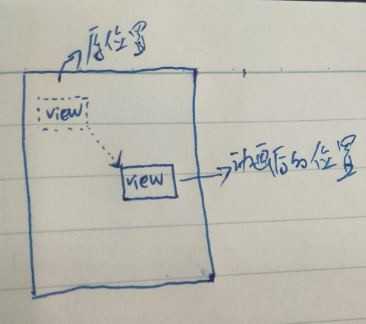 原位置
view
view
动画后的位置